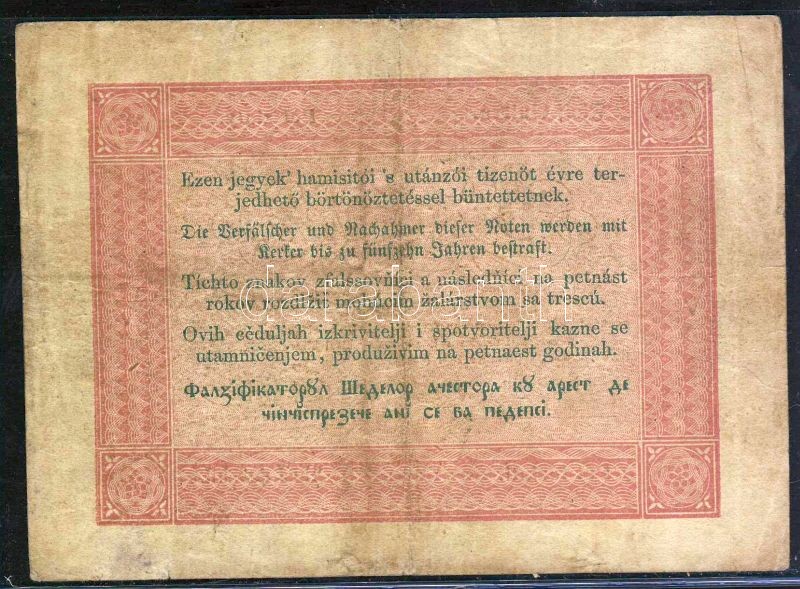 Ezen jegyek’ hamisitói ’s utánzói tizenöt évre ter-
jedhető börtönöztetéssel büntettetnek.
Die Verfälscher und Nachahmer dieser Noten werden mit
Kerker bis zu fünfzehn Jahren bestraft.
Tíchto znakov zfalssovňíci a následňíci na petnást
rokov rozdlžiť mohúcim žalárstvom sa trescú.
Ovih cěduljah izkrivitelji i špotvoritelji kazne se
utamničenjem, produživim na petnaest godinah.
Фалзіфікаторꙋл Шеделор ачестора кꙋ арест де
чінчіспрезече ані се ва педепсі.
darabanth